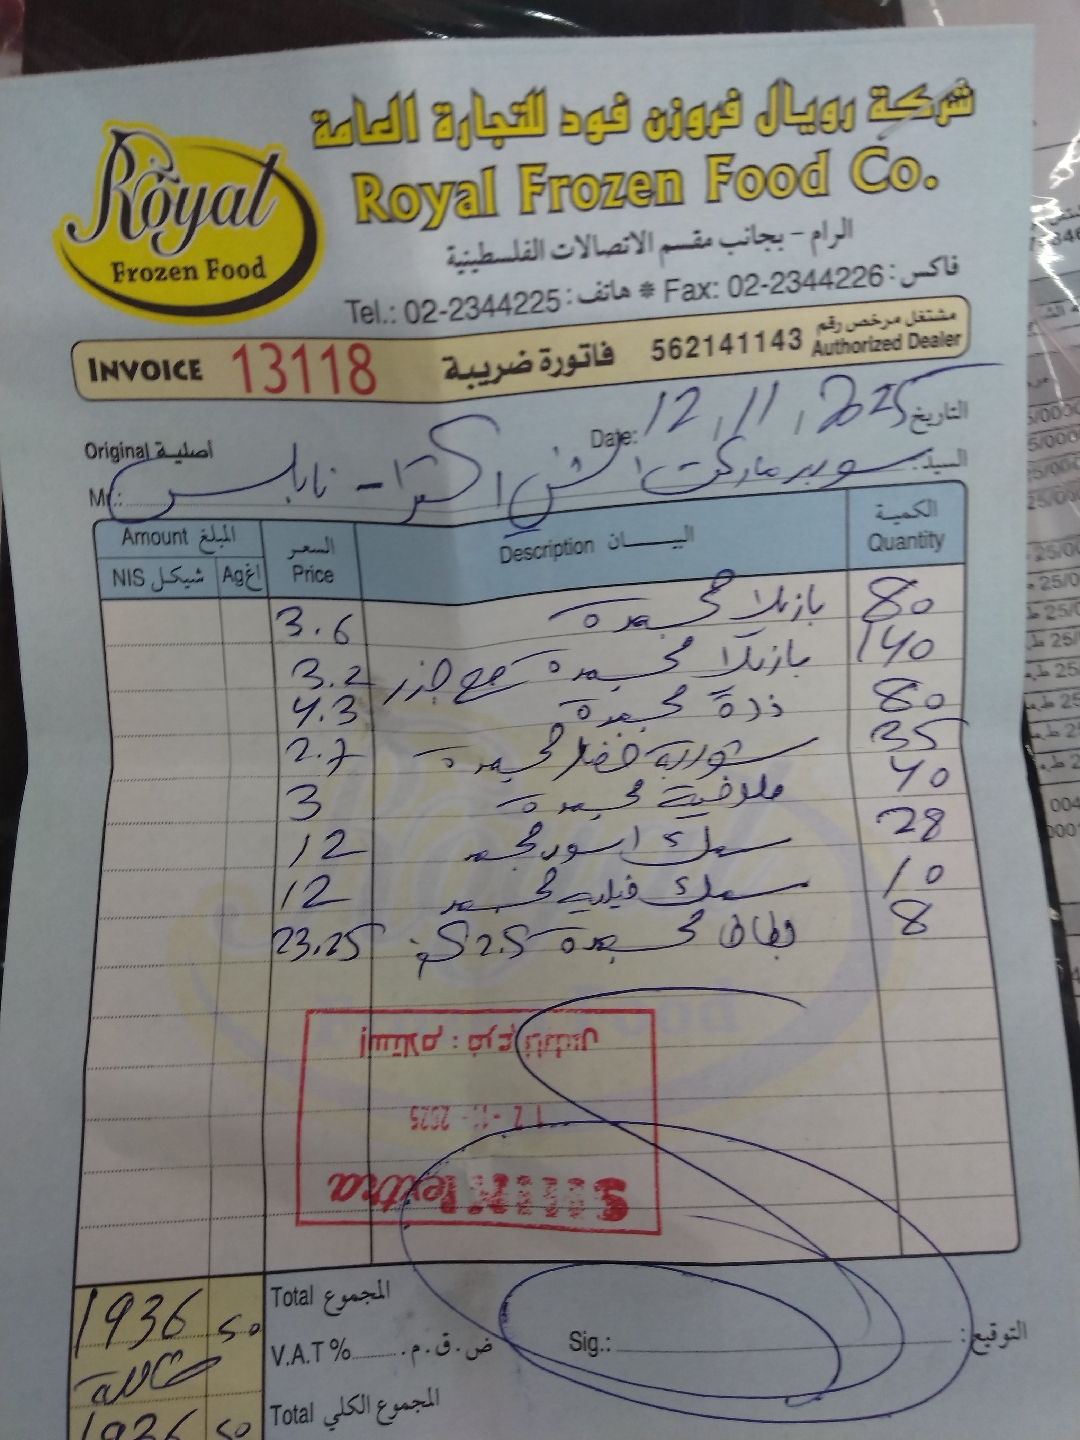 شركة رويال فروزن فود للتجارة العامة
Royal Frozen Food Co.
Royal
Frozen Food
الرام - بجانب مقسم الاتصالات الفلسطينية
Tel.: 02-2344225 : هاتف * Fax: 02-2344226 : فاكس
INVOICE 13118 فاتورة ضريبة 562141143 مشتغل مرخص رقم Authorized Dealer
Date: 12, 11, 2025 التاريخ
Original أصلية
Mr.: سوبر ماركت اكسترا - نابلس السيد:
Amount المبلغ السعر Price Description البيـــان الكمية Quantity
NIS شيكل Ag اغ
3.6 بازيلا مجمدة 80
3.2 بازيلا مجمدة مع جزر 140
4.3 ذرة مجمدة 80
2.7 مجمدة 35
3 ملوخية مجمدة 40
12 سمك مجمد 28
12 سمك فيليه مجمد 10
23.25 بطاطا مجمدة 2.5 كغم 8
إستلام : فرع نابلس
12 - 11 - 2025
extra
1936 50 Total المجموع
V.A.T %......... ض.ق.م. Sig.: التوقيع:
1936 50 Total المجموع الكلي